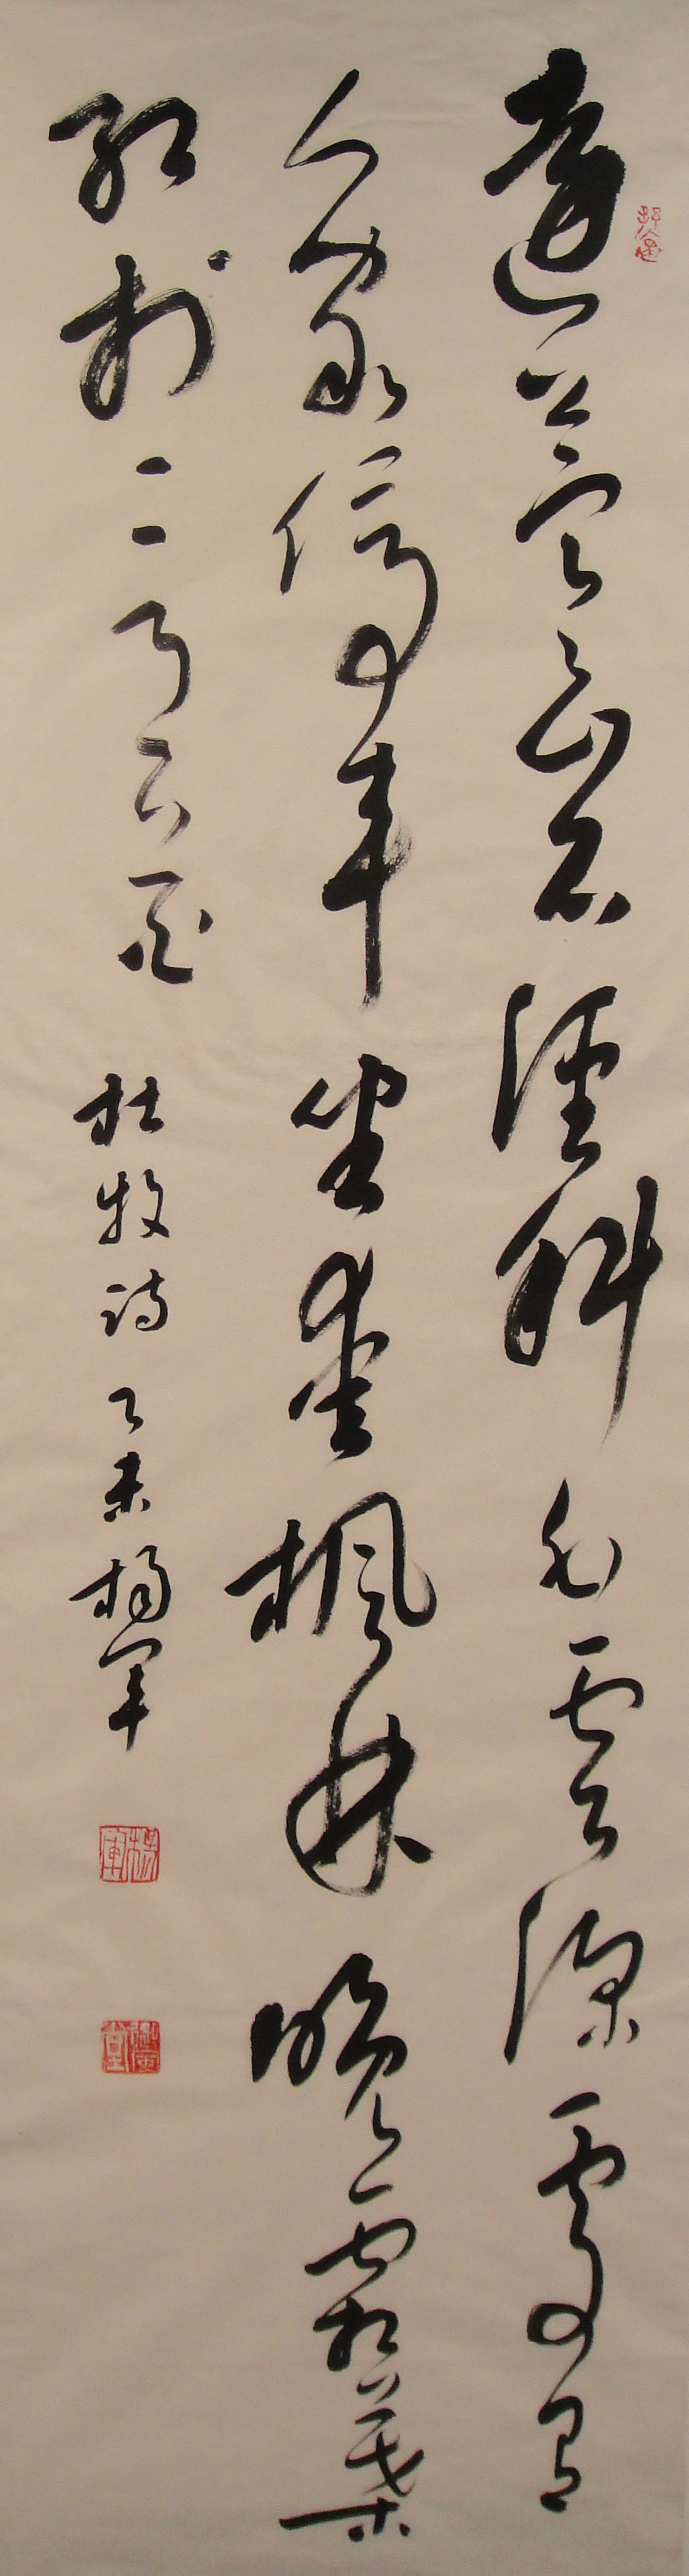 遠上寒山石徑斜白雲深處有
人家停車坐愛楓林晚霜葉
紅於二月花 杜牧詩 乙未楊軍
楊軍